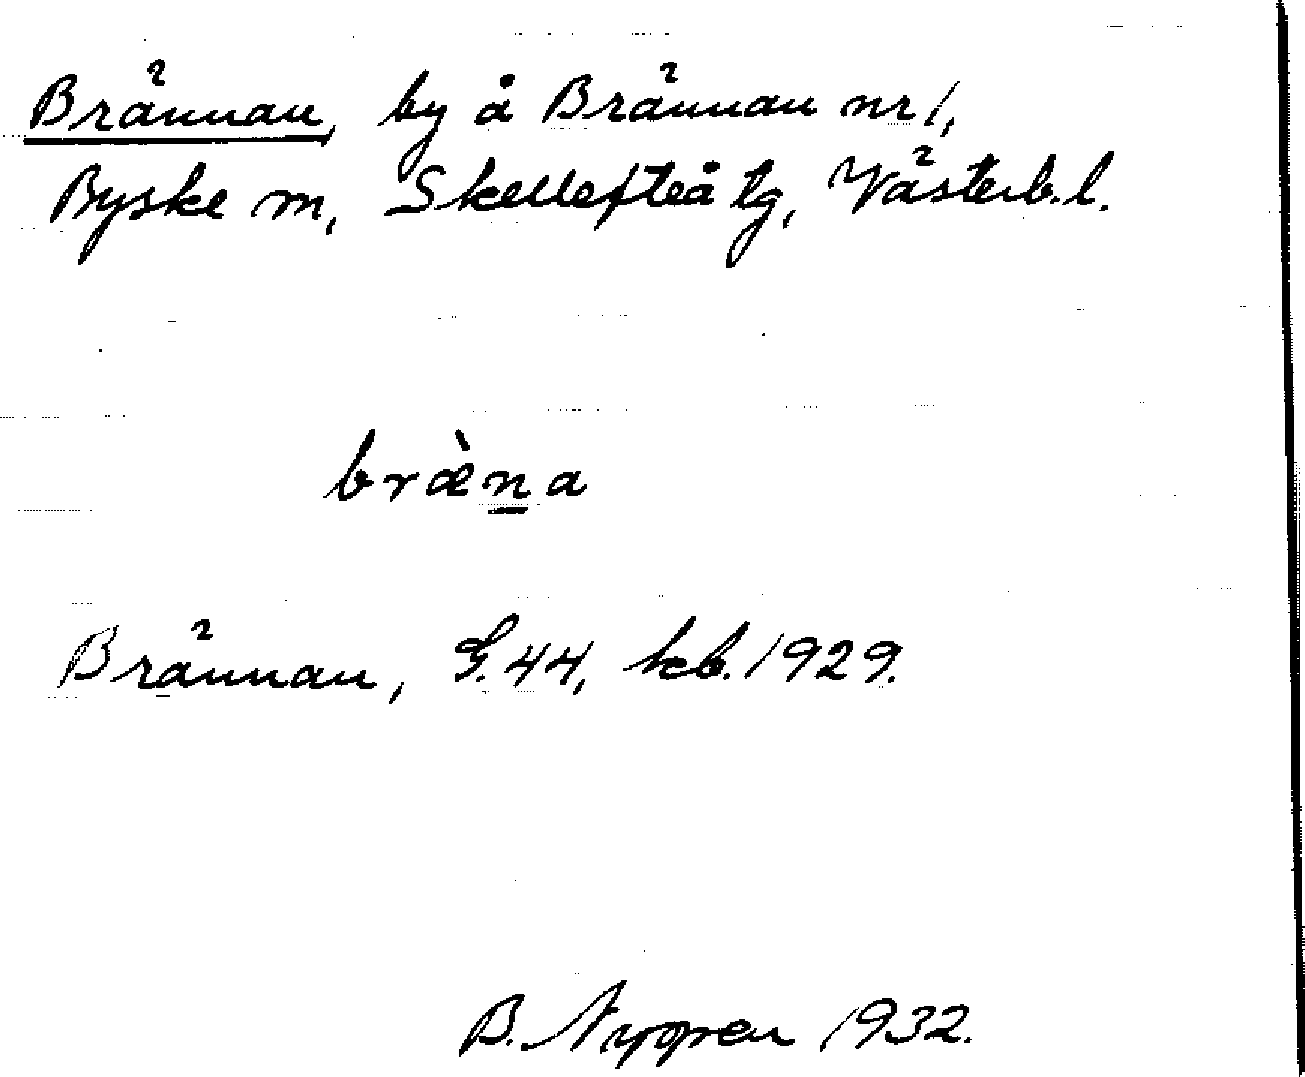 Brännan, by å Brännan nr 1,
Byske sn, Skellefteå tg, Västerb. l.
bræ̀n̲a
Brännan, G. 44, kb. 1929.
B. Nygren 1932.